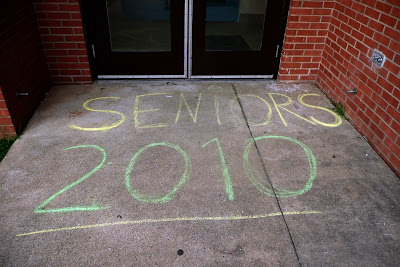 SENIORS
2010